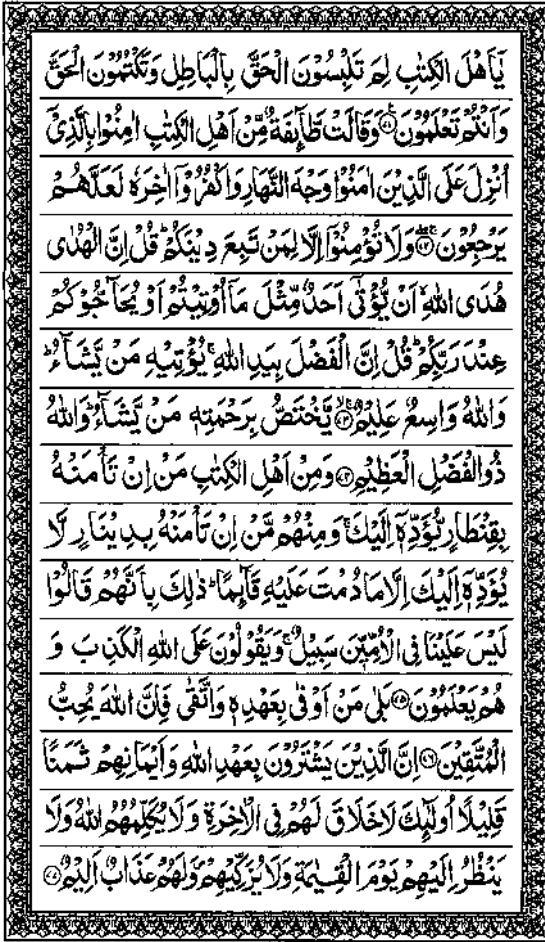 يٰۤاَهْلَ الْكِتٰبِ لِمَ تَلْبِسُوْنَ الْحَقَّ بِالْبَاطِلِ وَتَكْتُمُوْنَ الْحَقَّ
وَاَنْتُمْ تَعْلَمُوْنَ ﴿۷۱﴾ وَقَالَتْ طَّآئِفَةٌ مِّنْ اَهْلِ الْكِتٰبِ اٰمِنُوْا بِالَّذِيْۤ
اُنْزِلَ عَلَى الَّذِيْنَ اٰمَنُوْا وَجْهَ النَّهَارِ وَاكْفُرُوْۤا اٰخِرَهٗ لَعَلَّهُمْ
يَرْجِعُوْنَ ﴿۷۲﴾ وَلَا تُؤْمِنُوْۤا اِلَّا لِمَنْ تَبِعَ دِيْنَكُمْ ؕ قُلْ اِنَّ الْهُدٰى
هُدَى اللّٰهِ ۙ اَنْ يُّؤْتٰۤى اَحَدٌ مِّثْلَ مَاۤ اُوْتِيْتُمْ اَوْ يُحَآجُّوْكُمْ
عِنْدَ رَبِّكُمْ ؕ قُلْ اِنَّ الْفَضْلَ بِيَدِ اللّٰهِ ۚ يُؤْتِيْهِ مَنْ يَّشَآءُ ؕ
وَاللّٰهُ وَاسِعٌ عَلِيْمٌ ﴿۷۳﴾ يَّخْتَصُّ بِرَحْمَتِهٖ مَنْ يَّشَآءُ ؕ وَاللّٰهُ
ذُو الْفَضْلِ الْعَظِيْمِ ﴿۷۴﴾ وَمِنْ اَهْلِ الْكِتٰبِ مَنْ اِنْ تَاْمَنْهُ
بِقِنْطَارٍ يُّؤَدِّهٖۤ اِلَيْكَ ۚ وَمِنْهُمْ مَّنْ اِنْ تَاْمَنْهُ بِدِيْنَارٍ لَّا
يُؤَدِّهٖۤ اِلَيْكَ اِلَّا مَا دُمْتَ عَلَيْهِ قَآئِمًا ؕ ذٰلِكَ بِاَنَّهُمْ قَالُوْا
لَيْسَ عَلَيْنَا فِي الْاُمِّيّٖنَ سَبِيْلٌ ۚ وَيَقُوْلُوْنَ عَلَى اللّٰهِ الْكَذِبَ وَ
هُمْ يَعْلَمُوْنَ ﴿۷۵﴾ بَلٰى مَنْ اَوْفٰى بِعَهْدِهٖ وَاتَّقٰى فَاِنَّ اللّٰهَ يُحِبُّ
الْمُتَّقِيْنَ ﴿۷۶﴾ اِنَّ الَّذِيْنَ يَشْتَرُوْنَ بِعَهْدِ اللّٰهِ وَاَيْمَانِهِمْ ثَمَنًا
قَلِيْلًا اُولٰٓئِكَ لَا خَلَاقَ لَهُمْ فِي الْاٰخِرَةِ وَلَا يُكَلِّمُهُمُ اللّٰهُ وَلَا
يَنْظُرُ اِلَيْهِمْ يَوْمَ الْقِيٰمَةِ وَلَا يُزَكِّيْهِمْ ۪ وَلَهُمْ عَذَابٌ اَلِيْمٌ ﴿۷۷﴾